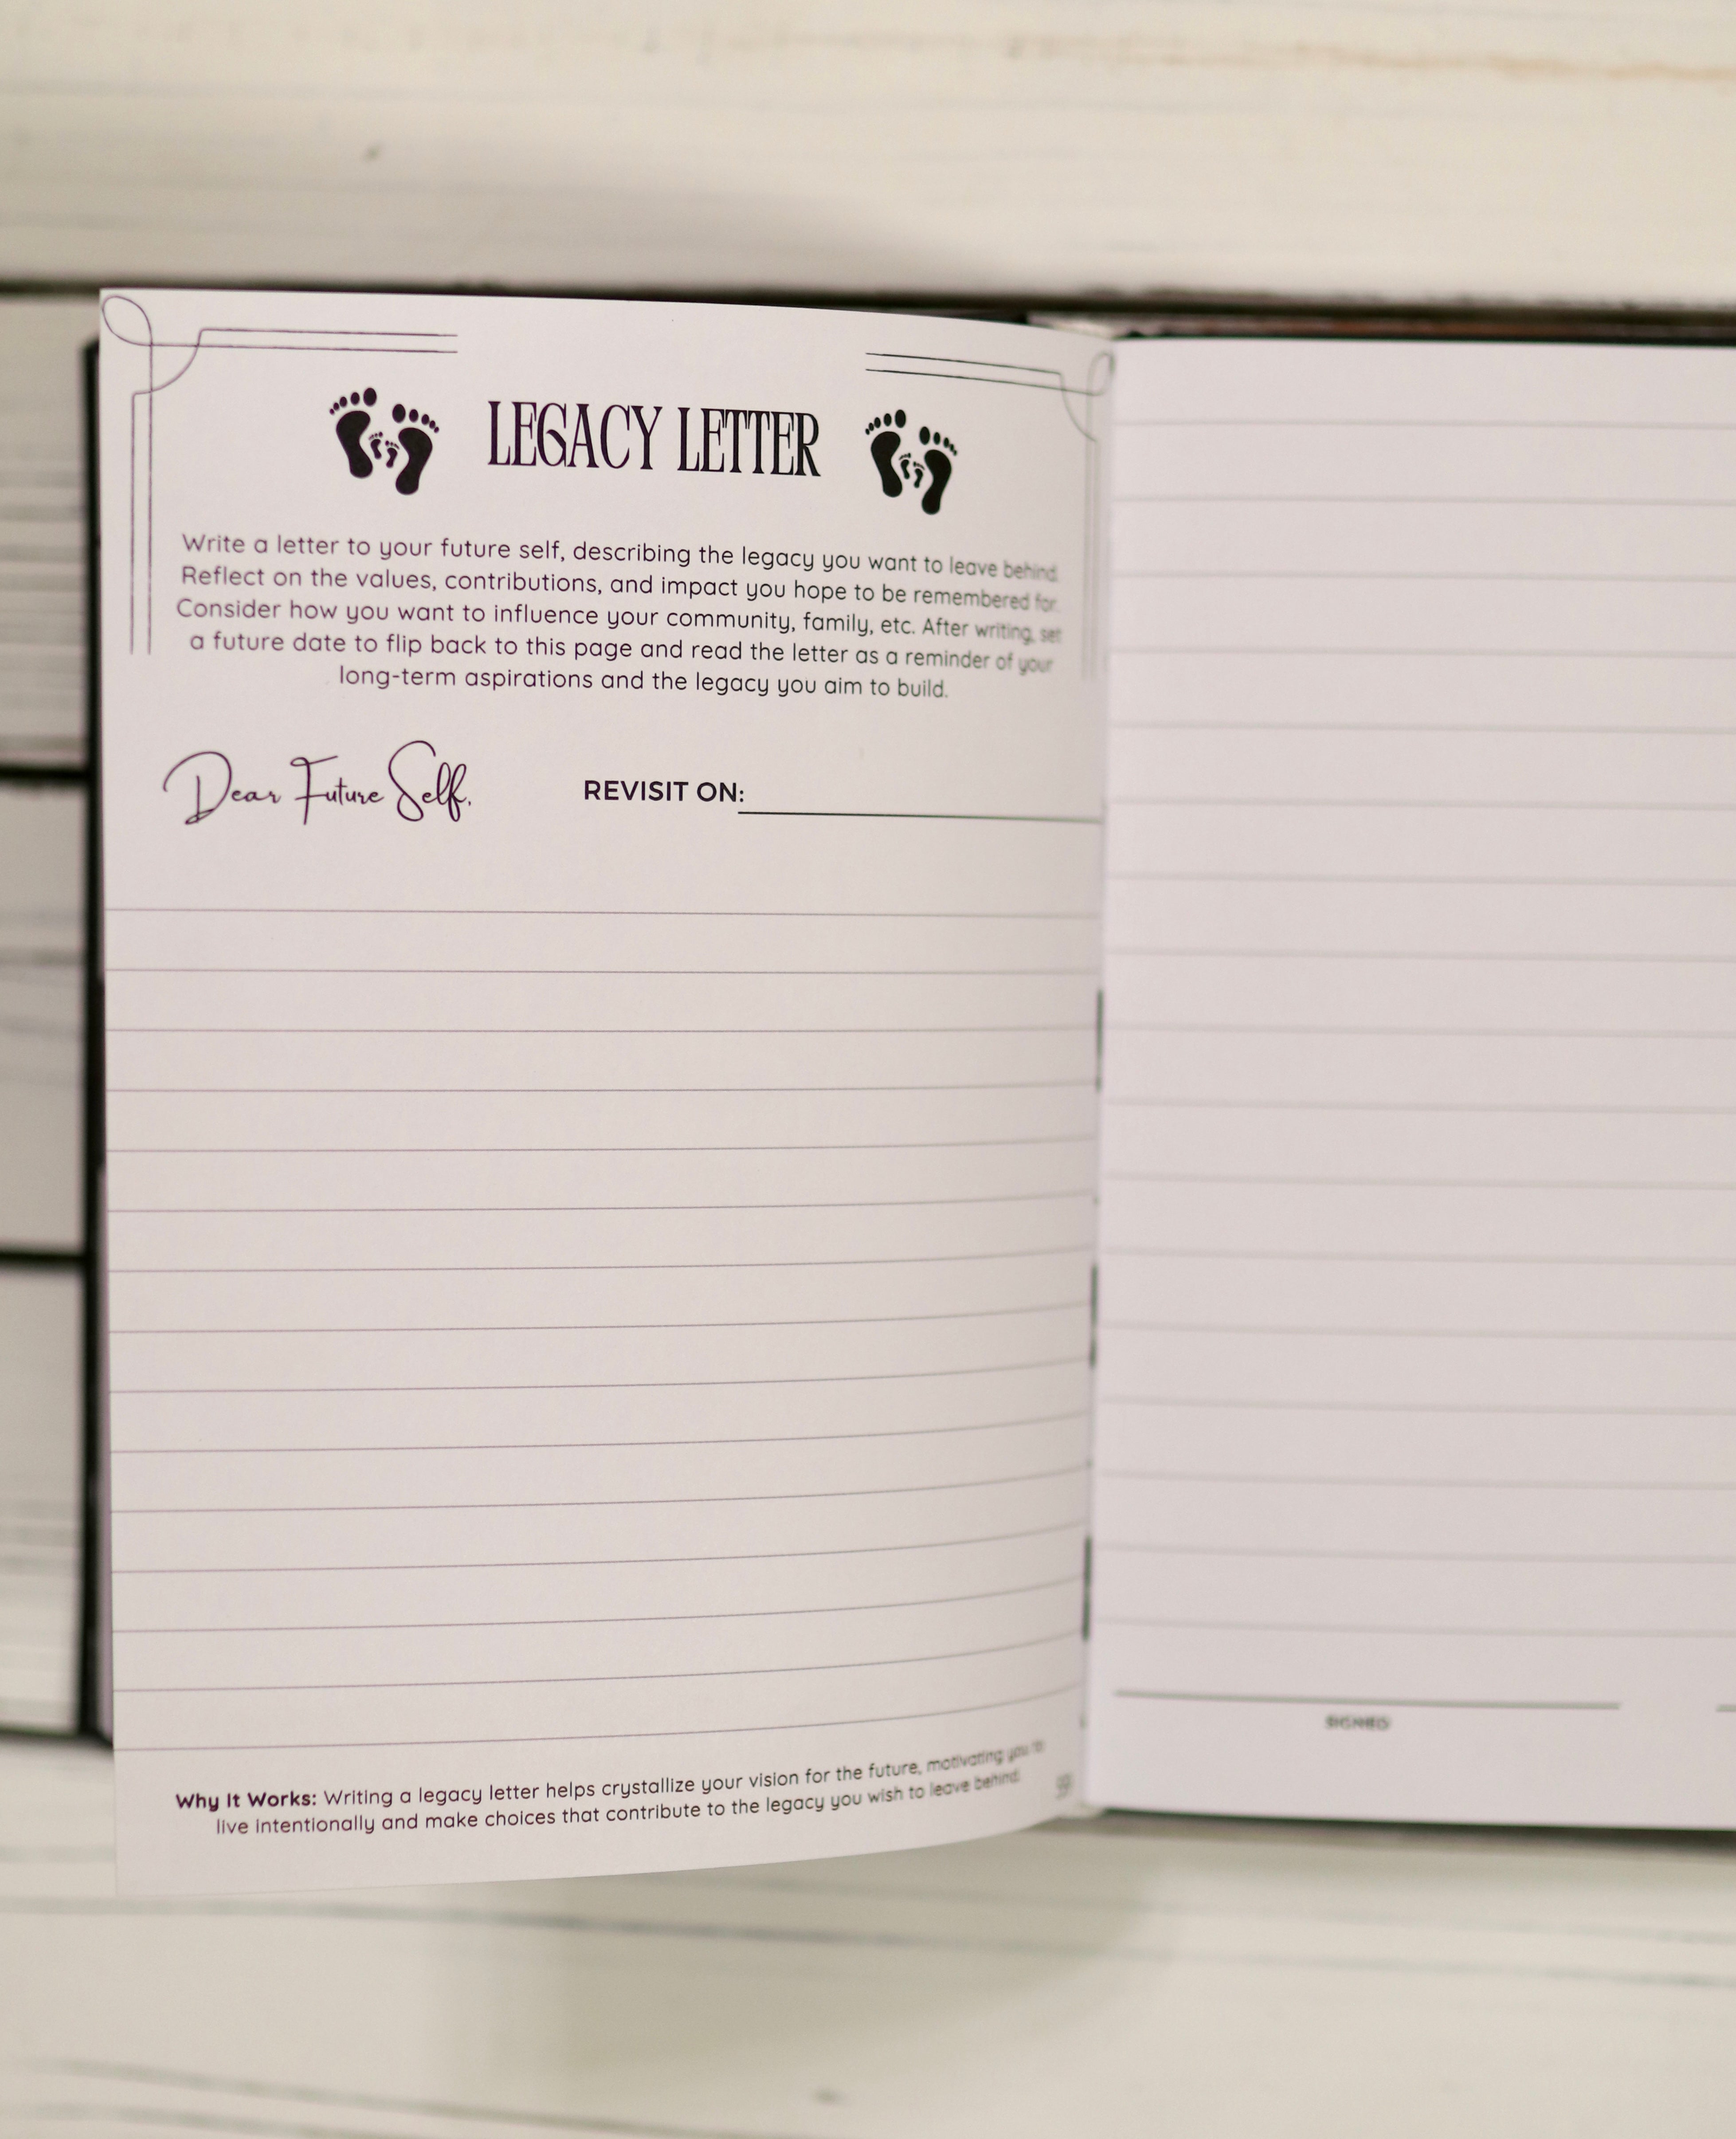 LEGACY LETTER
Write a letter to your future self, describing the legacy you want to leave behind.
Reflect on the values, contributions, and impact you hope to be remembered for.
Consider how you want to influence your community, family, etc. After writing, set
a future date to flip back to this page and read the letter as a reminder of your
long-term aspirations and the legacy you aim to build.
Dear Future Self,
REVISIT ON:
Why It Works: Writing a legacy letter helps crystallize your vision for the future, motivating you to
live intentionally and make choices that contribute to the legacy you wish to leave behind.
SIGNED